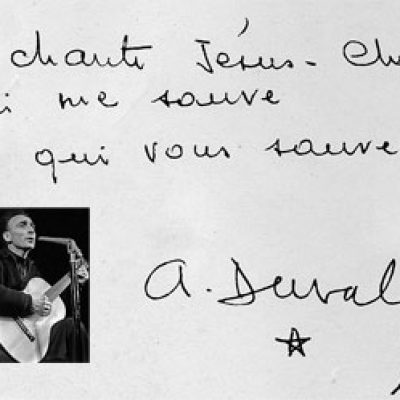 chante Jésus-Ch
i me sauve
qui vous sauve
A. Duval